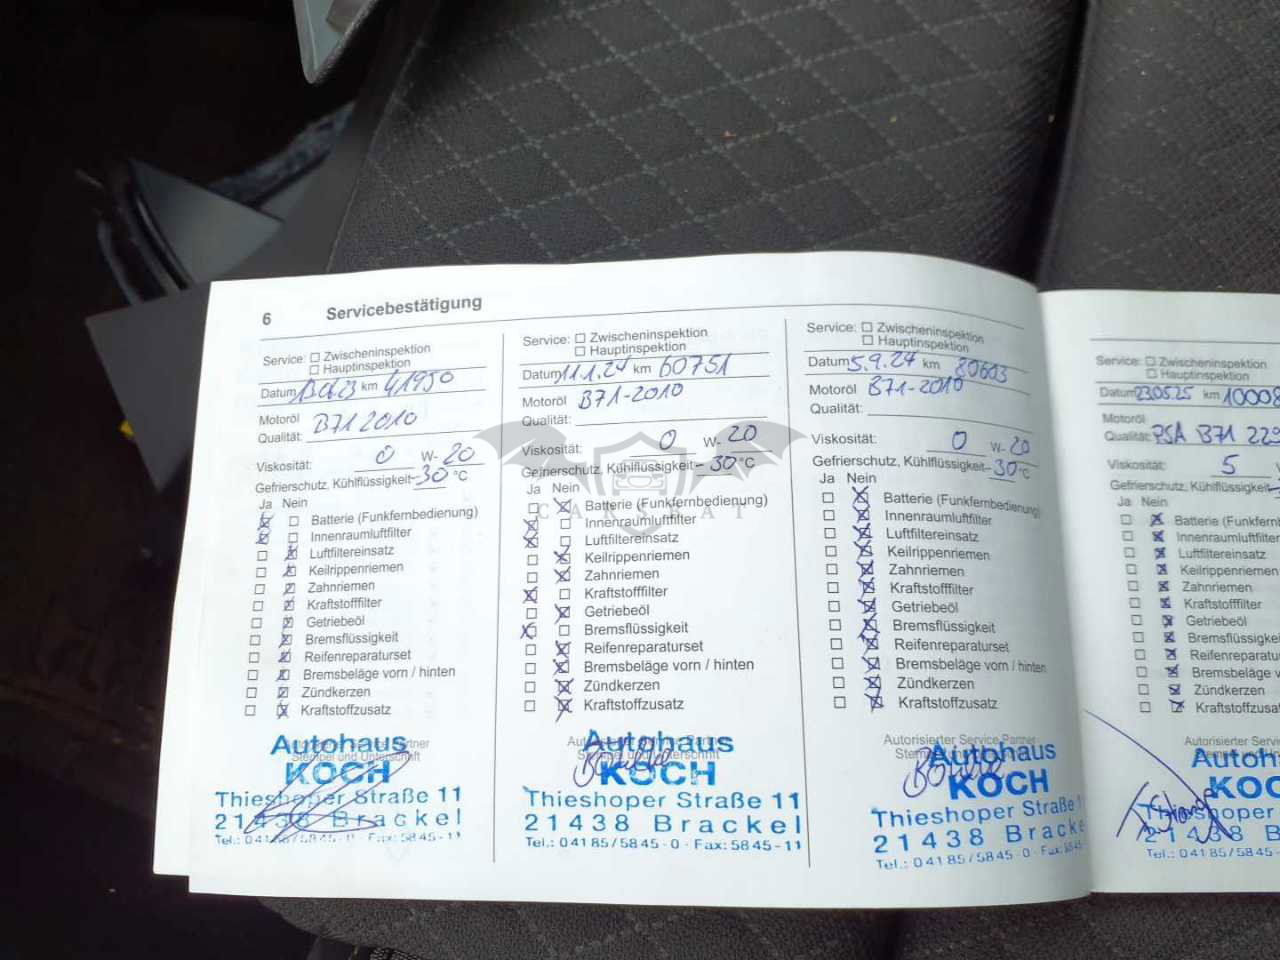 6 Servicebestätigung
Service: Zwischeninspektion
Hauptinspektion
Datum km 41950
Motoröl
Qualität: B71 2010
Viskosität: 0 W- 20
Gefrierschutz, Kühlflüssigkeit -30 °C
Ja Nein
Batterie (Funkfernbedienung)
Innenraumluftfilter
Luftfiltereinsatz
Keilrippenriemen
Zahnriemen
Kraftstofffilter
Getriebeöl
Bremsflüssigkeit
Reifenreparaturset
Bremsbeläge vorn / hinten
Zündkerzen
Kraftstoffzusatz
Autorisierter Service Partner
Stempel und Unterschrift
Autohaus
KOCH
Thieshoper Straße 11
21438 Brackel
Tel.: 04185/5845-0 · Fax: 5845-11
Service: Zwischeninspektion
Hauptinspektion
Datum 11.1.24 km 60751
Motoröl B71-2010
Qualität:
Viskosität: 0 W- 20
Gefrierschutz, Kühlflüssigkeit -30 °C
Ja Nein
Batterie (Funkfernbedienung)
Innenraumluftfilter
Luftfiltereinsatz
Keilrippenriemen
Zahnriemen
Kraftstofffilter
Getriebeöl
Bremsflüssigkeit
Reifenreparaturset
Bremsbeläge vorn / hinten
Zündkerzen
Kraftstoffzusatz
Autorisierter Service Partner
Stempel und Unterschrift
Autohaus
KOCH
Thieshoper Straße 11
21438 Brackel
Tel.: 04185/5845-0 · Fax: 5845-11
Service: Zwischeninspektion
Hauptinspektion
Datum 5.9.24 km 80603
Motoröl B71-2010
Qualität:
Viskosität: 0 W- 20
Gefrierschutz, Kühlflüssigkeit -30 °C
Ja Nein
Batterie (Funkfernbedienung)
Innenraumluftfilter
Luftfiltereinsatz
Keilrippenriemen
Zahnriemen
Kraftstofffilter
Getriebeöl
Bremsflüssigkeit
Reifenreparaturset
Bremsbeläge vorn / hinten
Zündkerzen
Kraftstoffzusatz
Autorisierter Service Partner
Autohaus
KOCH
Thieshoper Straße 1
21438 Bracke
Tel.: 04185/5845-0 · Fax: 584
Service: Zwischeninspektion
Hauptinspektion
Datum 23.05.25 km 10008
Motoröl
Qualität: PSA B71 229
Viskosität: 5 W-
Gefrierschutz, Kühlflüssigkeit
Ja Nein
Batterie (Funkfernbe
Innenraumluftfilter
Luftfiltereinsatz
Keilrippenriemen
Zahnriemen
Kraftstofffilter
Getriebeöl
Bremsflüssigkeit
Reifenreparaturs
Bremsbeläge vorn
Zündkerzen
Kraftstoffzusat
Autorisierter Servi
Autohau
KOC
Thieshoper S
21438 B
Tel.: 04185/5845-
CARSBAT